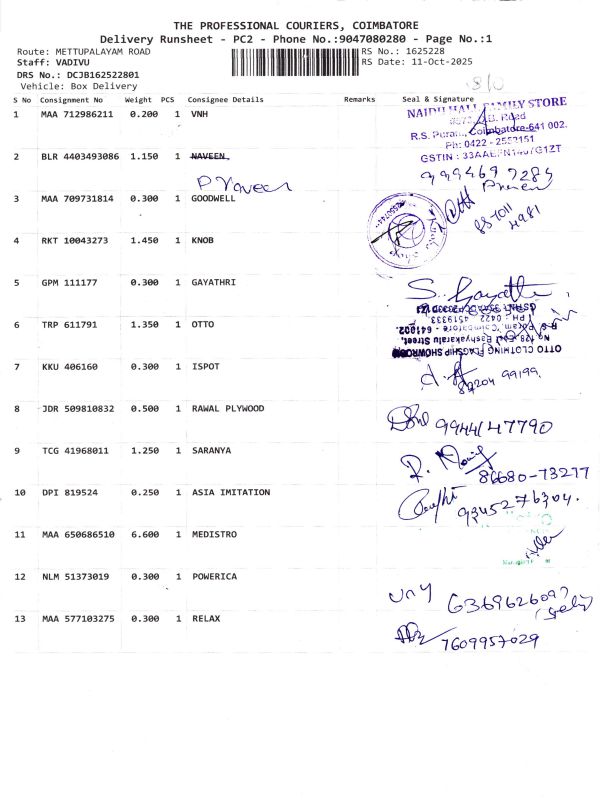 THE PROFESSIONAL COURIERS, COIMBATORE
Delivery Runsheet - PC2 - Phone No.:9047080280 - Page No.:1
Route: METTUPALAYAM ROAD RS No.: 1625228
Staff: VADIVU RS Date: 11-Oct-2025
DRS No.: DCJB162522801
Vehicle: Box Delivery
S No Consignment No Weight PCS Consignee Details Remarks Seal & Signature
1 MAA 712986211 0.200 1 VNH
NAIDU HALL FAMILY STORE
R.S. Puram, Coimbatore-641 002.
Ph: 0422 - 2552151
2 BLR 4403493086 1.150 1 NAVEEN
P Naveen
3 MAA 709731814 0.300 1 GOODWELL
4 RKT 10043273 1.450 1 KNOB
5 GPM 111177 0.300 1 GAYATHRI S. Gayathri
6 TRP 611791 1.350 1 OTTO
OTTO CLOTHING FLAGSHIP SHOWROOM
R.S. Puram, Coimbatore - 641002.
PH : 0422 - 4519333
7 KKU 406160 0.300 1 ISPOT
8 JDR 509810832 0.500 1 RAWAL PLYWOOD 9944147790
9 TCG 41968011 1.250 1 SARANYA 86680-73277
10 DPI 819524 0.250 1 ASIA IMITATION 9345276304.
11 MAA 650686510 6.600 1 MEDISTRO
12 NLM 51373019 0.300 1 POWERICA 6369626097
13 MAA 577103275 0.300 1 RELAX 7609957029